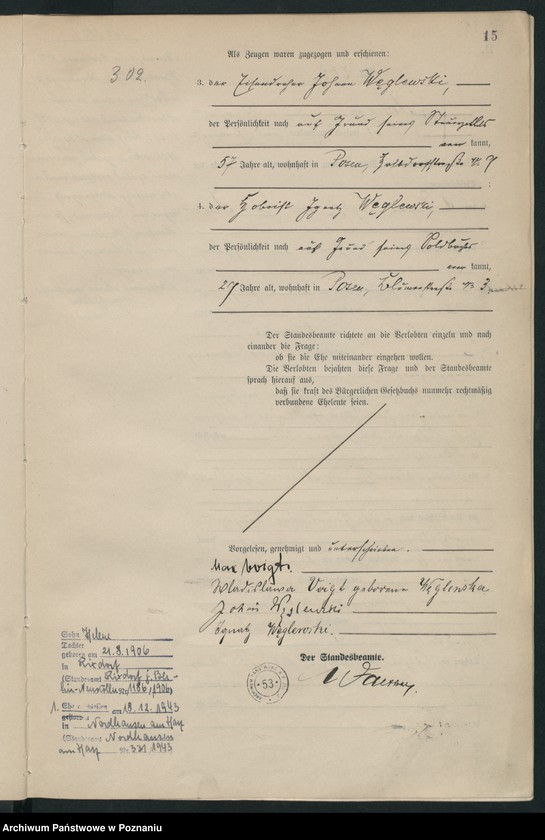 15
302.
Als Zeugen waren zugezogen und erschienen:
3. der Eisendreher Johann Węglewski,
der Persönlichkeit nach auf Grund seines Steuerzettels
kannt,
57 Jahre alt, wohnhaft in Posen, № 7
;
4. der Ignatz Węglewski,
der Persönlichkeit nach auf Grund seines Soldbuches
kannt,
27 Jahre alt, wohnhaft in Posen, Blumenstraße № 3
Der Standesbeamte richtete an die Verlobten einzeln und nach
einander die Frage:
ob sie die Ehe miteinander eingehen wollen.
Die Verlobten bejahten diese Frage und der Standesbeamte
sprach hierauf aus,
daß sie kraft des Bürgerlichen Gesetzbuchs nunmehr rechtmäßig
verbundene Eheleute seien.
Vorgelesen, genehmigt und unterschrieben.
Max Voigt.
Wladislawa Voigt geborene Węglewska
Johann Węglewski
Ignatz Węglewski.
Der Standesbeamte.
53
Sohn Helene
Tochter
geboren am 21.8.1906
in Rixdorf
(Standesamt Rixdorf j. Ber-
lin-Neukölln № 1186/1906)
1. Ehe geschlossen am 18.12.1943
in Nordhausen am Harz
(Standesamt Nordhausen
am Harz № 321/1943
Archiwum Państwowe w Poznaniu
www.szukajwarchiwach.gov.pl